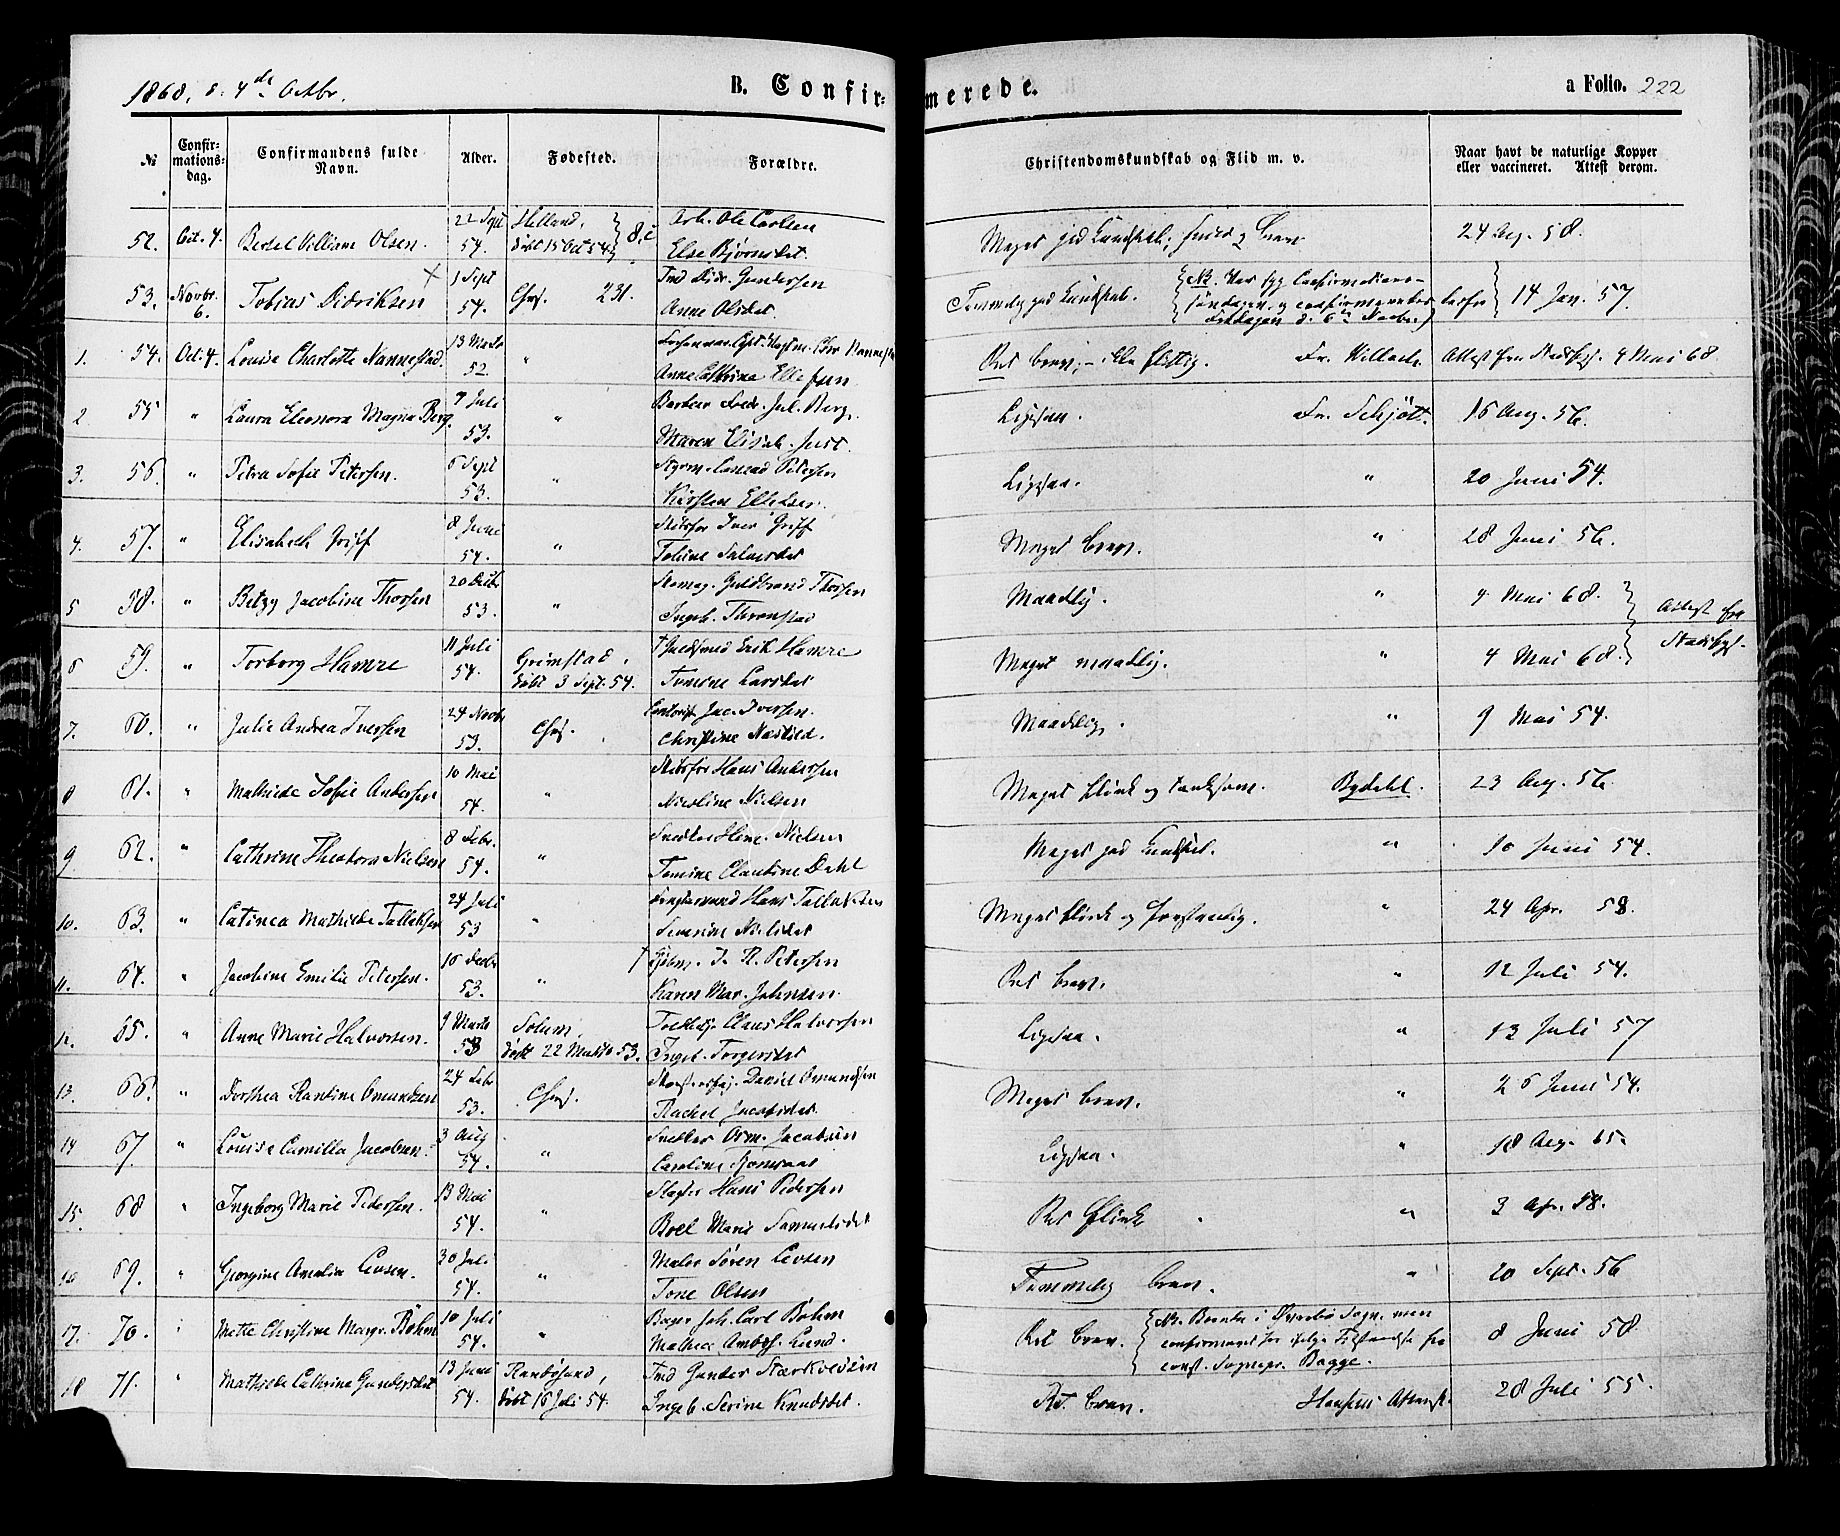 1868, d. 4de Octbr.
B. Confir-
merede.
a Folio. 222
№
Confir-
mations-
dag.
Confirmandens fulde
Navn.
Alder.
Fødested.
Forældre.
Christendomskundskab og Flid m. v.
Naar havt de naturlige Kopper
eller vaccineret. Attest derom.
52. Oct. 4. Bertel Villiam Olsen. 22 Sept 54. døbt 15 Oct 54 Arb. Ole Carlsen
Else Bjørnsdat. 24 Aug. 58.
53. Novbr. 6. Tobias Didriksen 1 Sept 54. Chrs. 231. Ind Didr. Gundersen
Anne Olsdat. Temmelig god Kundskab. NB. Var syg Confirmations-
søndagen og confirmeredes derfor
Fredagen d. 6te Novbr. 14 Jan. 57.
1. 54. Oct. 4. Louise Charlotte Nannestad 13 Marts 52. "
Anne Cathrine Ellefsen Ret brav; - Attest fra 4 Mai 68
2 55 " Laura Eleonora Magna Berg. 7 Juli 53. " Barber Fredr. Jul. Berg.
Maren Elisab. Juul. Ligesaa. Fr. Schjøtt. 16 Aug. 56.
3. 56. " Petra Sofie Petersen. 6 Sept 53. " Styrm. Conrad Petersen
Kirsten Ellefsen. Ligesaa. " 20 Juni 54.
4. 57. " Elisabeth Griff 8 Juni 54. " Iver Griff
Meget brav. " 28 Juni 56.
5 58. " Betzy Jacobine Thorsen 20 53. " Guldbrand Thorsen
Ingeb. Maadelig. " 4 Mai 68. Attest fra
6 59. " Torborg Hamre 11 Juli 54. Grimstad, døbt 3 Sept. 54. † Guldsmed Erik Hamre
Tomine Larsdat. Meget maadelig. " 4 Mai 68.
7. 60. " Julie Andrea Iversen 24 Novbr 53. Chrs. Contorist Jac. Iversen.
Christine Maadelig. " 9 Mai 54.
8 61. " Mathilde Sofie Andersen 10 Mai 54. " Hans Andersen
Nicoline Nielsen Meget flink og tænksom. Bydahl. 23 Aug. 56.
9 62. " Cathrine Theodora Nielsen 8 Febr. 54. " Snedker Henr. Nielsen
Tomine Claudine Dahl Meget god Kundskab. " 10 Juni 54.
10. 63. " Catinca Mathilde Tallaksen 24 Juli 53 " Hans Tallaksen
Severine Nielsdat. Meget flink og forstandig. " 24 Apr. 58.
11. 64. " Jacobine Emilie Petersen. 16 53. " † Petersen
Karen Mar. Johnsen Ret brav. " 12 Juli 54.
12. 65. " Anne Marie Halvorsen. 9 Marts 53 Solum, døbt 22 Marts 53. Claus Halvorsen
Ingeb. Torgersdat Ligesaa. " 13 Juli 57
13. 66. " Dorthea Omundsen 24 Febr 53. Chrs. David Omundsen
Rachel Jacobsdat. Meget brav. " 26 Juni 54.
14 67. " Louise Camilla Jacobsen. 3 Aug 54. " Snedker Jacobsen
Caroline Ligesaa. " 18 Aug. 65.
15. 68 " Ingeborg Marie Pedersen. 13 Mai 54. " Slagter Hans Pedersen
Boel Marie Samuelsdat Ret flink " 3 Apr. 58.
16 69. " Georgine Amalia Levsen. 30 Juli 54. " Maler Søren Levsen
Tone Olsen Temmelig brav. " 20 Sept. 56
17. 70. " Mette Christine Margr. Bøhm 10 Juli 54. " Bager Joh. Carl Bøhm
Mathea Ambr. Lund. Ret brav. NB. i Øvrebø Sogn, men
confirmeret her ifølge Tilladelse fra
const. Sognepr. Bagge. 8 Juni 58.
18 71. " Mathilde Cathrine Gundersdat 13 Juni 54. Randøsund, døbt 16 Juli 54. Ind Gunder
Ingeb. Serine Knudsdat. Ret brav. 28 Juli 55.